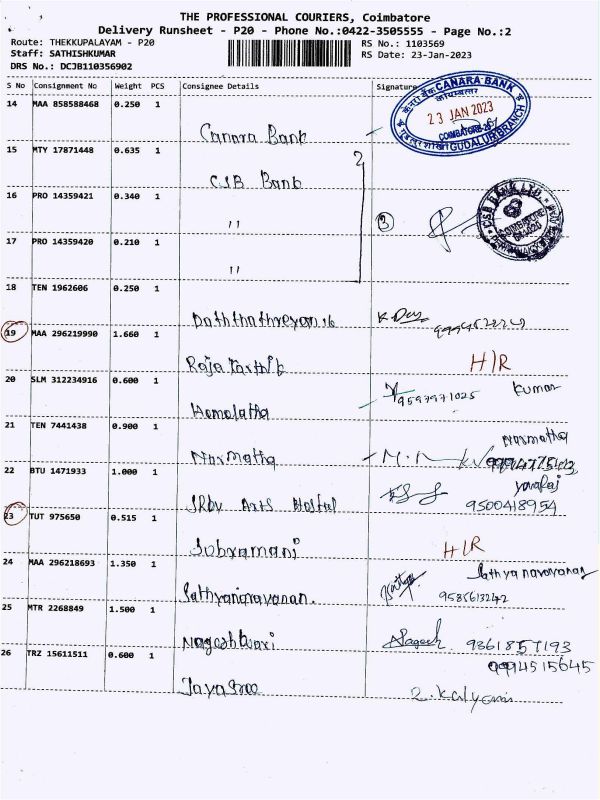 THE PROFESSIONAL COURIERS, Coimbatore
Delivery Runsheet - P20 - Phone No.:0422-3505555 - Page No.:2
Route: THEKKUPALAYAM - P20 RS No.: 1103569
Staff: SATHISHKUMAR RS Date: 23-Jan-2023
DRS No.: DCJB110356902
S No Consignment No Weight PCS Consignee Details Signature
14 MAA 858588468 0.250 1
Canara Bank
CANARA BANK
23 JAN 2023
COIMBATORE
GUDALUR BRANCH
15 MTY 17871448 0.635 1
CSB Bank
16 PRO 14359421 0.340 1
" 3
CSB BANK LTD.
COIMBATORE
17 PRO 14359420 0.210 1
"
18 TEN 1962606 0.250 1
19 MAA 296219990 1.660 1
Raja Karthik H/R
20 SLM 312234916 0.600 1
Hemalatha 9597971025 Kumar
21 TEN 7441438 0.900 1
Narmatha Narmatha
22 BTU 1471933 1.000 1
Arts Hostel 9500418954
23 TUT 975650 0.515 1
Subramani H/R
24 MAA 296218693 1.350 1
Sathyanarayanan. Sathyanarayanan
9585613242
25 MTR 2268849 1.500 1
Nageshwari Nagesh 9361857193
26 TRZ 15611511 0.600 1
9994515645
Jayasree R. Kalyani